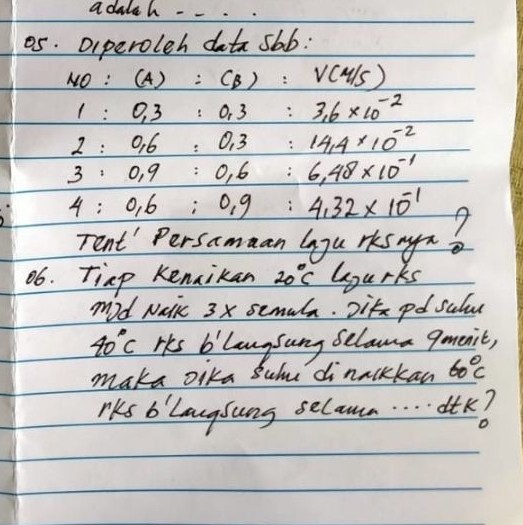 adalah - - . . .
05. Diperoleh data sbb:
NO : (A) : (B) : V(M/s)
1 : 0,3 : 0,3 : 3,6 x 10⁻²
2 : 0,6 : 0,3 : 14,4 x 10⁻²
3 : 0,9 : 0,6 : 6,48 x 10⁻¹
4 : 0,6 : 0,9 : 4,32 x 10⁻¹
Tent' Persamaan laju rksnya?
06. Tiap Kenaikan 20°C laju rks
mjd Naik 3x semula. Jika pd suhu
40°C rks b'langsung selama 9 menit,
maka Jika suhu dinaikkan 60°C
rks b'langsung selama .... dtk?